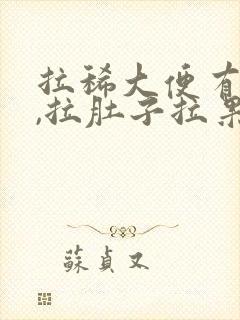 拉稀大便有
,拉肚子拉黑
蘇貞又